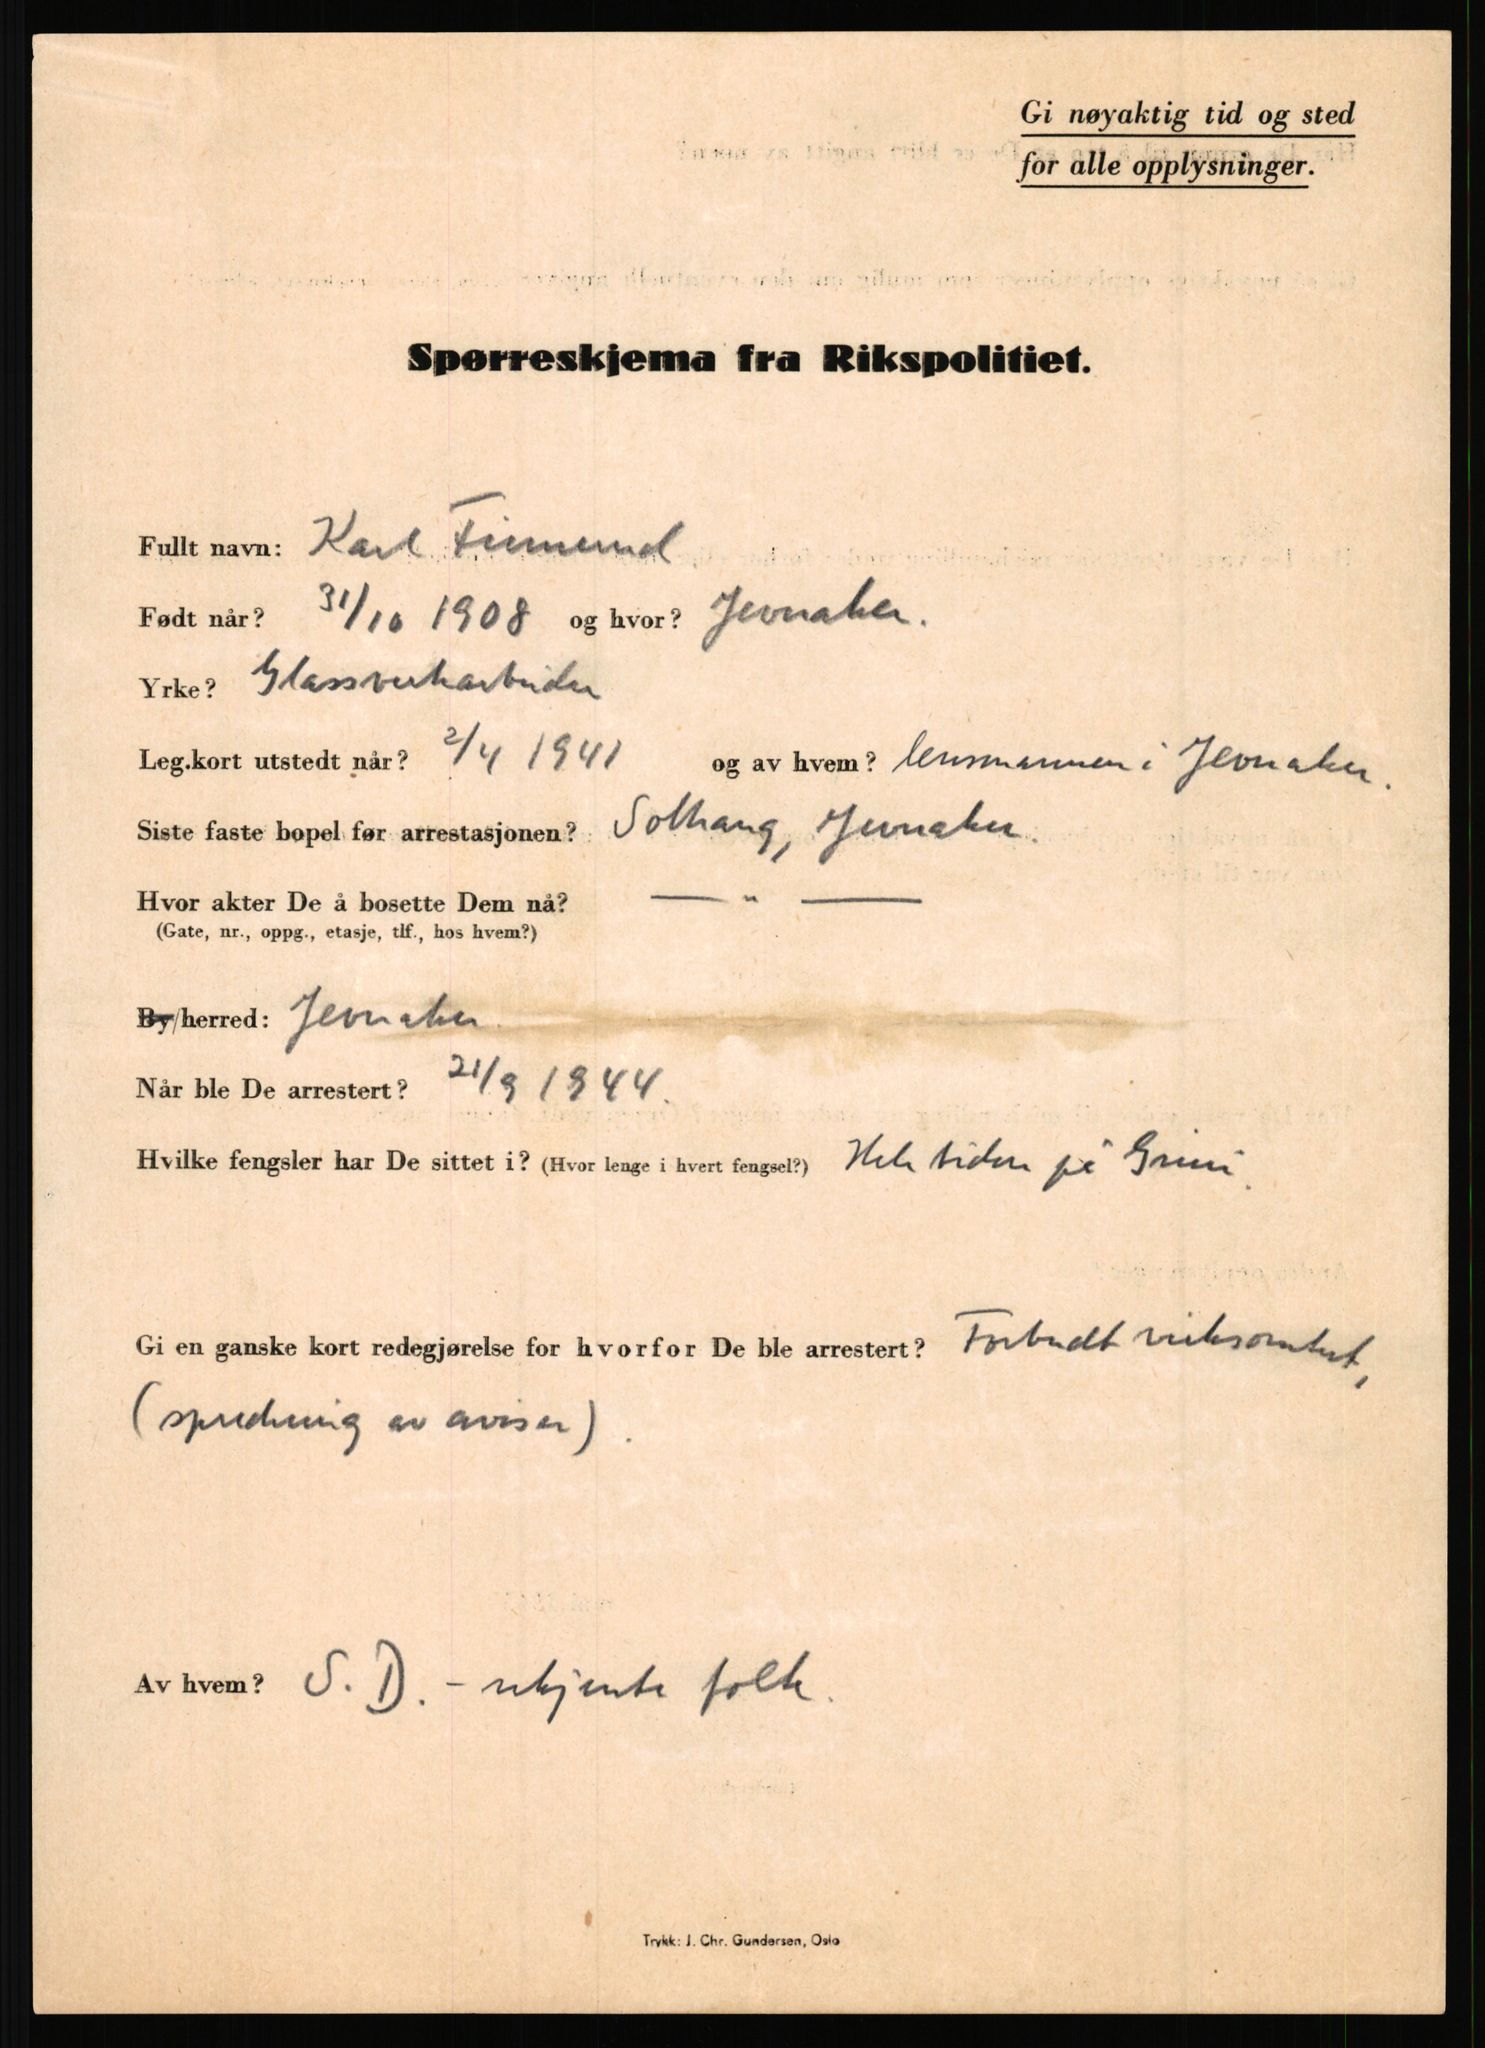 Gi nøyaktig tid og sted
for alle opplysninger.
Spørreskjema fra Rikspolitiet.
Fullt navn: Karl
Født når? 31/10 1908 og hvor? Jevnaker.
Yrke? Glassverkarbeider
Leg.kort utstedt når? 2/4 1941 og av hvem? lensmannen i Jevnaker.
Siste faste bopel før arrestasjonen? Solhaug, Jevnaker.
Hvor akter De å bosette Dem nå? — " —
(Gate, nr., oppg., etasje, tlf., hos hvem?)
By/herred: Jevnaker
Når ble De arrestert? 21/9 1944.
Hvilke fengsler har De sittet i? (Hvor lenge i hvert fengsel?) Hele tiden på Grini.
Gi en ganske kort redegjørelse for hvorfor De ble arrestert? Forbudt virksomhet,
(spredning av aviser).
Av hvem? S.D. - ukjente folk.
Trykk: J. Chr. Gundersen, Oslo